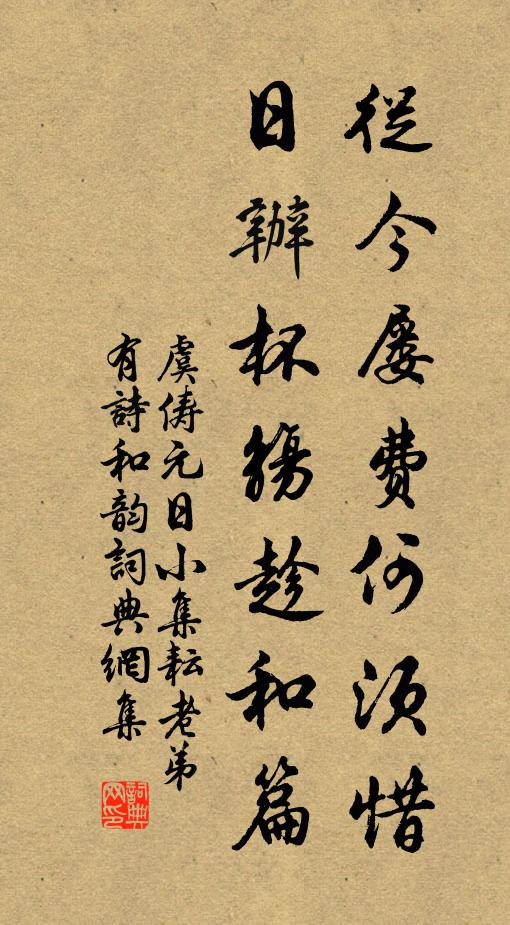 從今屡費何須惜
日辦杯觴趁和篇
虞俦元日小集耘老弟
有詩和韵詞典網集
詞典
网印